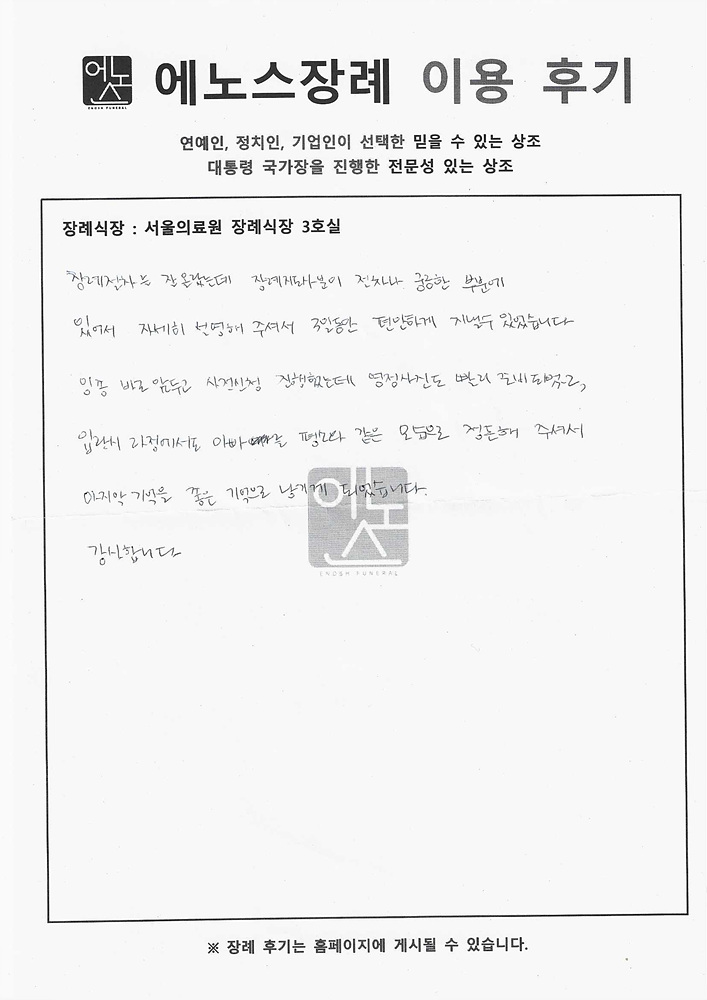 에노스
ENOSH FUNERAL
에노스장례 이용 후기
연예인, 정치인, 기업인이 선택한 믿을 수 있는 상조
대통령 국가장을 진행한 전문성 있는 상조
장례식장 : 서울의료원 장례식장 3호실
장례절차는 잘 몰랐는데 장례지도사분이 절차나 궁금한 부분에
있어서 자세히 설명해 주셔서 3일동안 편안하게 지낼수 있었습니다
임종 바로 앞두고 사전신청 진행했는데 영정사진도 빨리 준비되었고,
입관시 과정에서도 아빠 를 평소와 같은 모습으로 정돈해 주셔서
마지막 기억을 좋은 기억으로 남기게 되었습니다.
감사합니다
에노스
ENOSH FUNERAL
※ 장례 후기는 홈페이지에 게시될 수 있습니다.